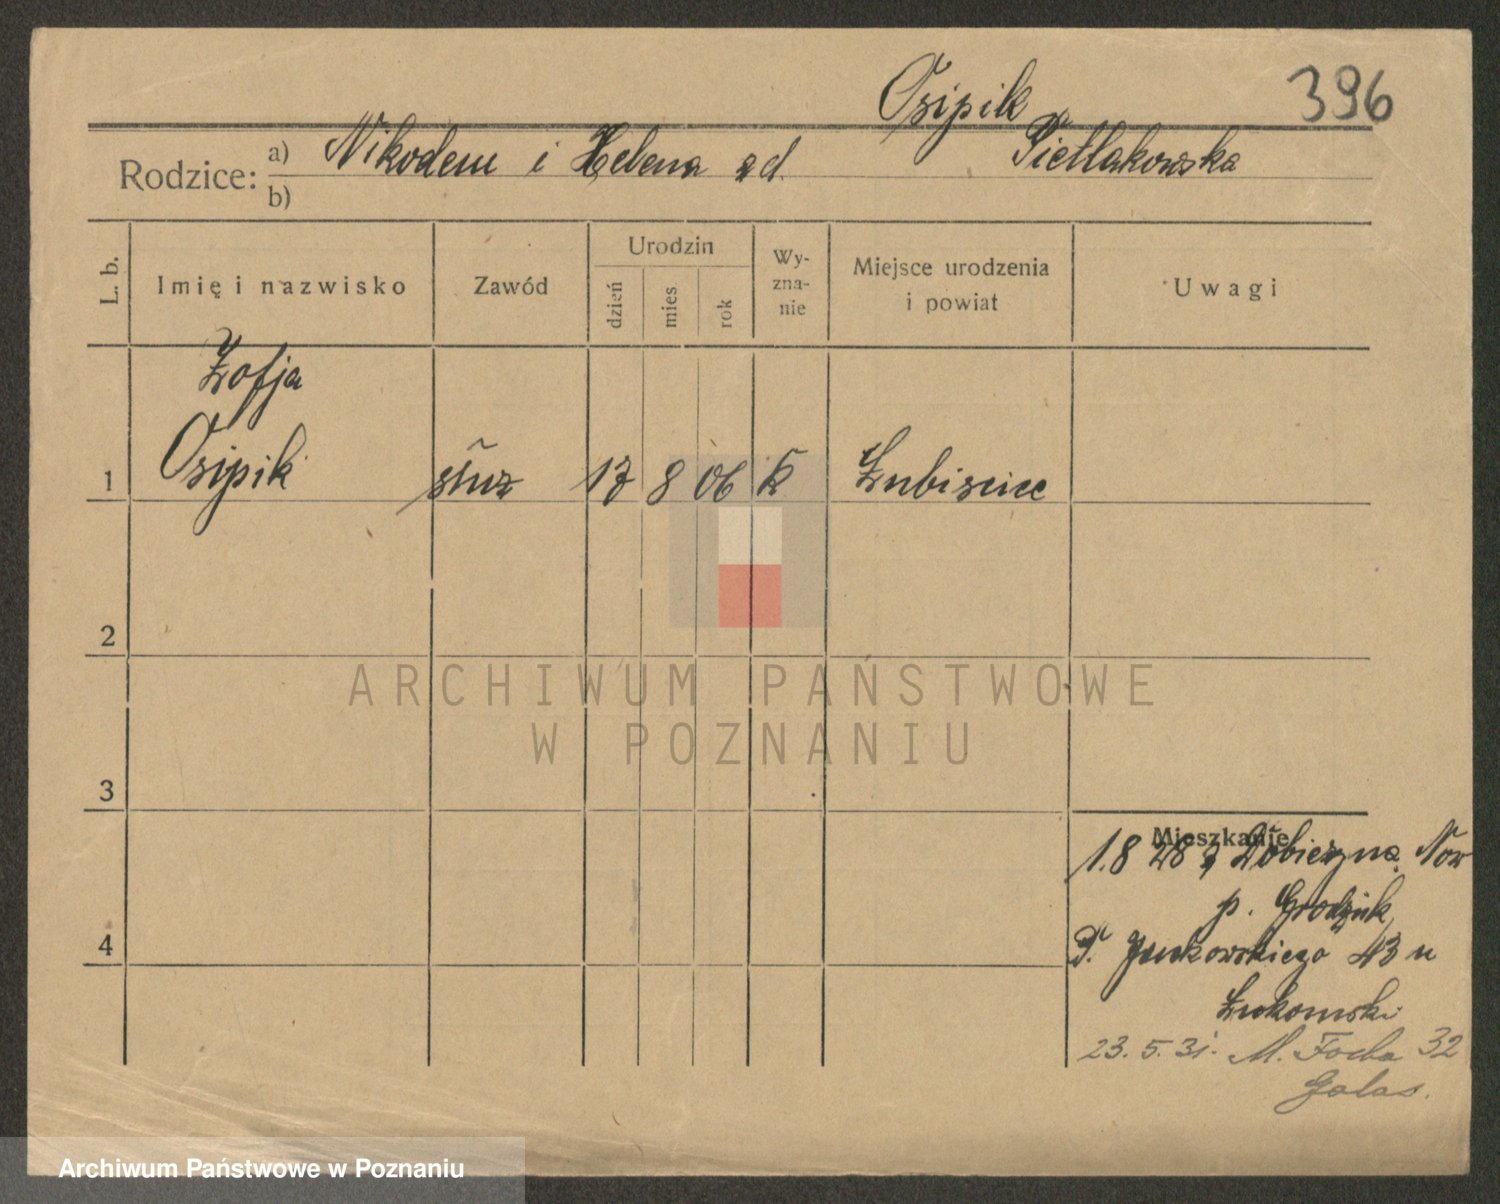 Osipik 396
Rodzice: a) Nikodem i Helena zd. Pietlakowska
b)
L. b. Imię i nazwisko Zawód Urodzin dzień mies rok Wyznanie Miejsce urodzenia i powiat Uwagi
Zofja
1 Osipik służ 17 8 06 k
2
3
Mieszkanie
1.8 28 z Now
p. Grodzisk
4 43 u
Łukomski
23. 5. 31. M. Focha 32
Galas.
ARCHIWUM PAŃSTWOWE
W POZNANIU
Archiwum Państwowe w Poznaniu